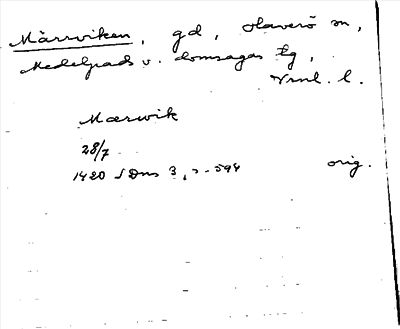 Märrviken, gd, Haverö sn,
Medelpads v. domsagas tg,
Vrnl. l.
Marwik
28/7
1420 SDns 3, s. 594 orig.